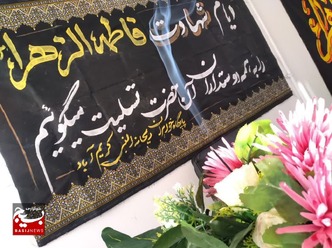 ایام شهادت فاطمة الزهراء
را به همه دوستداران آن حضرت تسلیت میگوئیم
کریم آباد
بسیج
BASIJNEWS